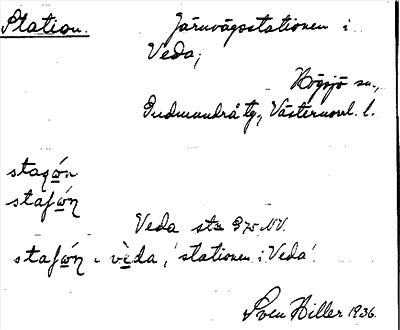 Station.
Järnvägsstationen i
Veda;
Högsjö sn.,
Gudmundrå tg., Västernorrl. l.
stasωn
staʃωn
Veda stn 975 NV.
staʃωn i vèda, 'stationen i Veda'.
Sven Hiller 1936.